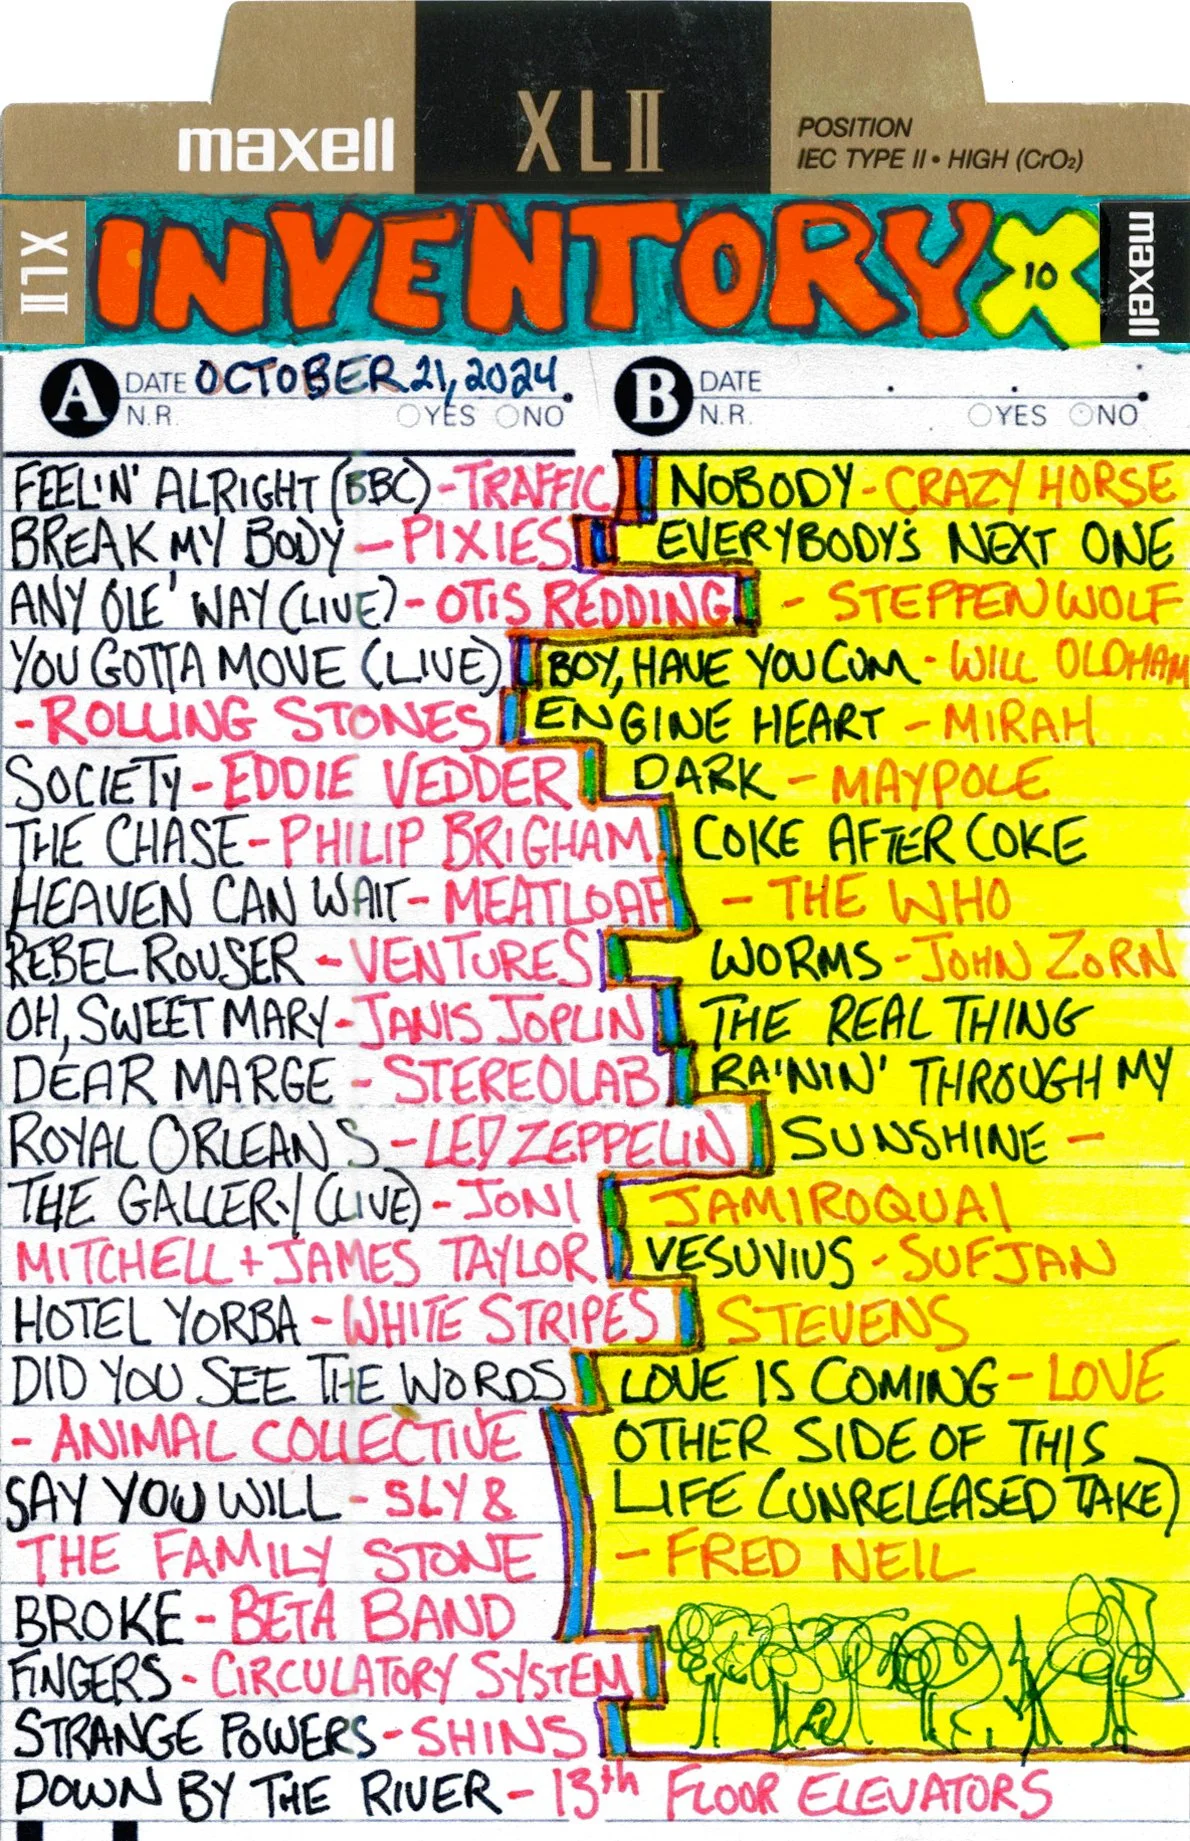 maxell XLII POSITION
IEC TYPE II • HIGH (CrO₂)
XLII INVENTORY X 10 maxell
A DATE OCTOBER 21, 2024
N.R. YES NO
B DATE
N.R. YES NO
FEELIN' ALRIGHT (BBC) - TRAFFIC
BREAK MY BODY - PIXIES
ANY OLE' WAY (LIVE) - OTIS REDDING
YOU GOTTA MOVE (LIVE)
- ROLLING STONES
SOCIETY - EDDIE VEDDER
THE CHASE - PHILIP BRIGHAM
HEAVEN CAN WAIT - MEATLOAF
REBEL ROUSER - VENTURES
OH, SWEET MARY - JANIS JOPLIN
DEAR MARGE - STEREOLAB
ROYAL ORLEANS - LED ZEPPELIN
THE GALLERY (LIVE) - JONI
MITCHELL + JAMES TAYLOR
HOTEL YORBA - WHITE STRIPES
DID YOU SEE THE WORDS
- ANIMAL COLLECTIVE
SAY YOU WILL - SLY &
THE FAMILY STONE
BROKE - BETA BAND
FINGERS - CIRCULATORY SYSTEM
STRANGE POWERS - SHINS
DOWN BY THE RIVER - 13th FLOOR ELEVATORS
NOBODY - CRAZY HORSE
EVERYBODY'S NEXT ONE
- STEPPENWOLF
BOY, HAVE YOU CUM - WILL OLDHAM
ENGINE HEART - MIRAH
DARK - MAYPOLE
COKE AFTER COKE
- THE WHO
WORMS - JOHN ZORN
THE REAL THING
RAININ' THROUGH MY
SUNSHINE -
JAMIROQUAI
VESUVIUS - SUFJAN
STEVENS
LOVE IS COMING - LOVE
OTHER SIDE OF THIS
LIFE (UNRELEASED TAKE)
- FRED NEIL